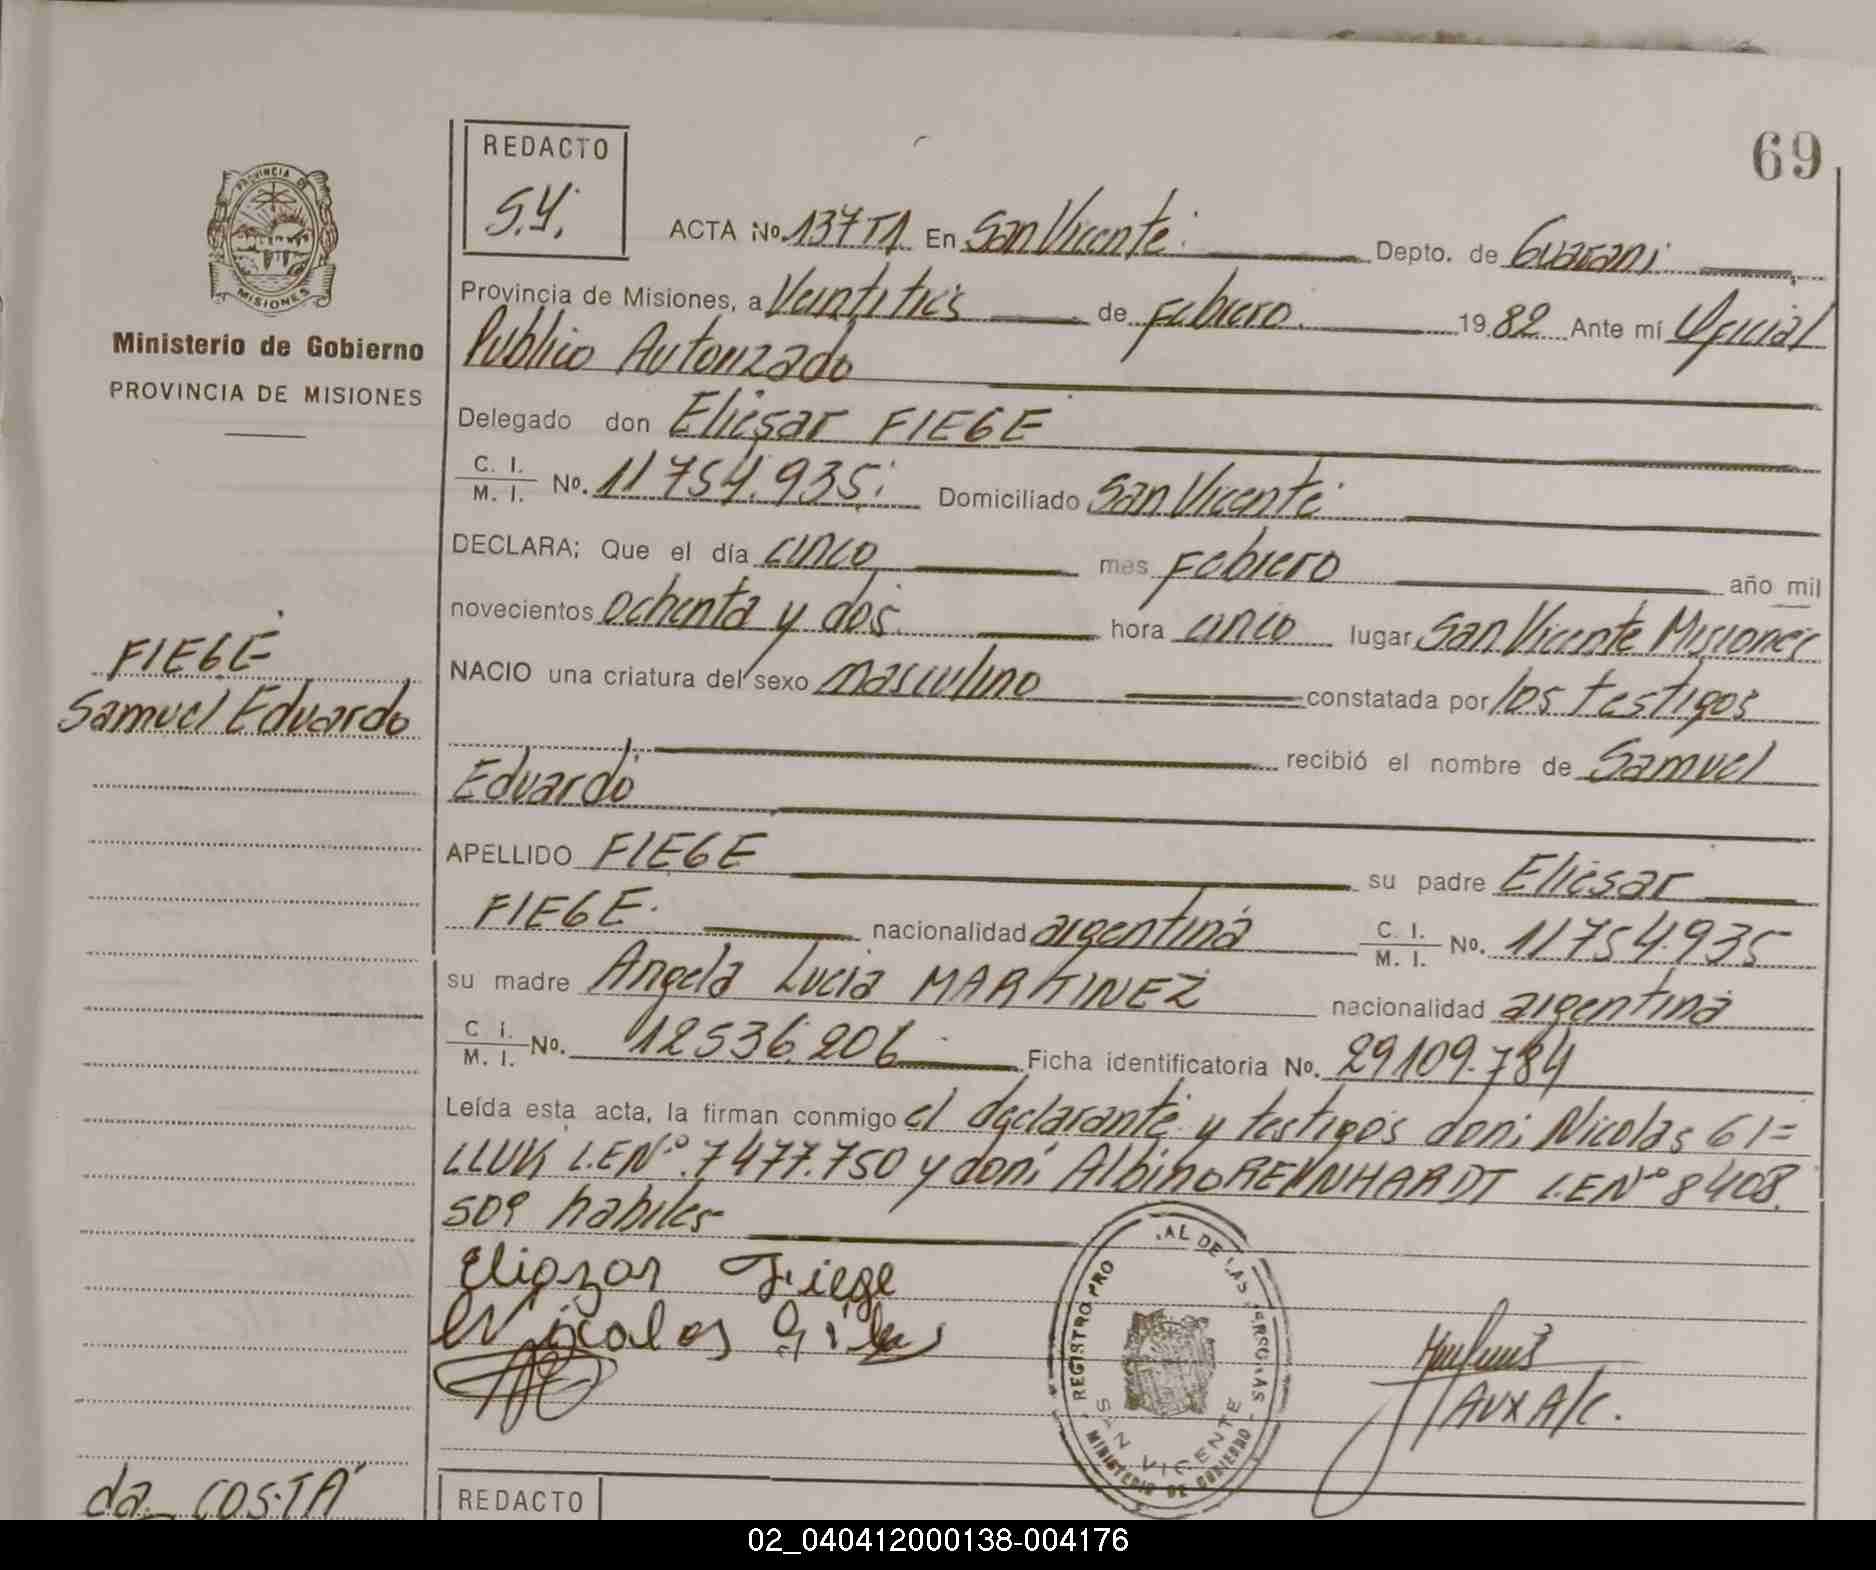 69
REDACTO
S.Y.
PROVINCIA DE
MISIONES
Ministerio de Gobierno
PROVINCIA DE MISIONES
ACTA No. 137 T1 En San Vicente. Depto. de Guarani
Provincia de Misiones, a Veintitres de Febrero. 1982 Ante mí Oficial
Publico Autorizado
Delegado don Eliesar FIEGE
C. I. / M. I. No. 11754.935. Domiciliado San Vicente
DECLARA: Que el día cinco mes Febrero año mil
novecientos ochenta y dos hora cinco lugar San Vicente Misiones
NACIO una criatura del sexo masculino constatada por los testigos
recibió el nombre de Samuel
Eduardo
APELLIDO FIEGE su padre Eliesar
FIEGE. nacionalidad argentina C. I. / M. I. No. 11754.935
su madre Angela Lucia MARTINEZ nacionalidad argentina
C. I. / M. I. No. 12536.206 Ficha identificatoria No. 29109.784
Leída esta acta, la firman conmigo el declarante y testigos don; Nicolas GI=
LLUK L.E Nº.7477.750 y don; Albino REYNHARDT L.E Nº 8408.
509 habiles
Eliazar Fiege
Nicolas
AUX A/C.
REGISTRO PRO AL DE LAS PERSONAS
SAN VICENTE
MINISTERIO DE GOBIERNO
FIEGE
Samuel Eduardo
da COSTA
REDACTO
02_040412000138-004176